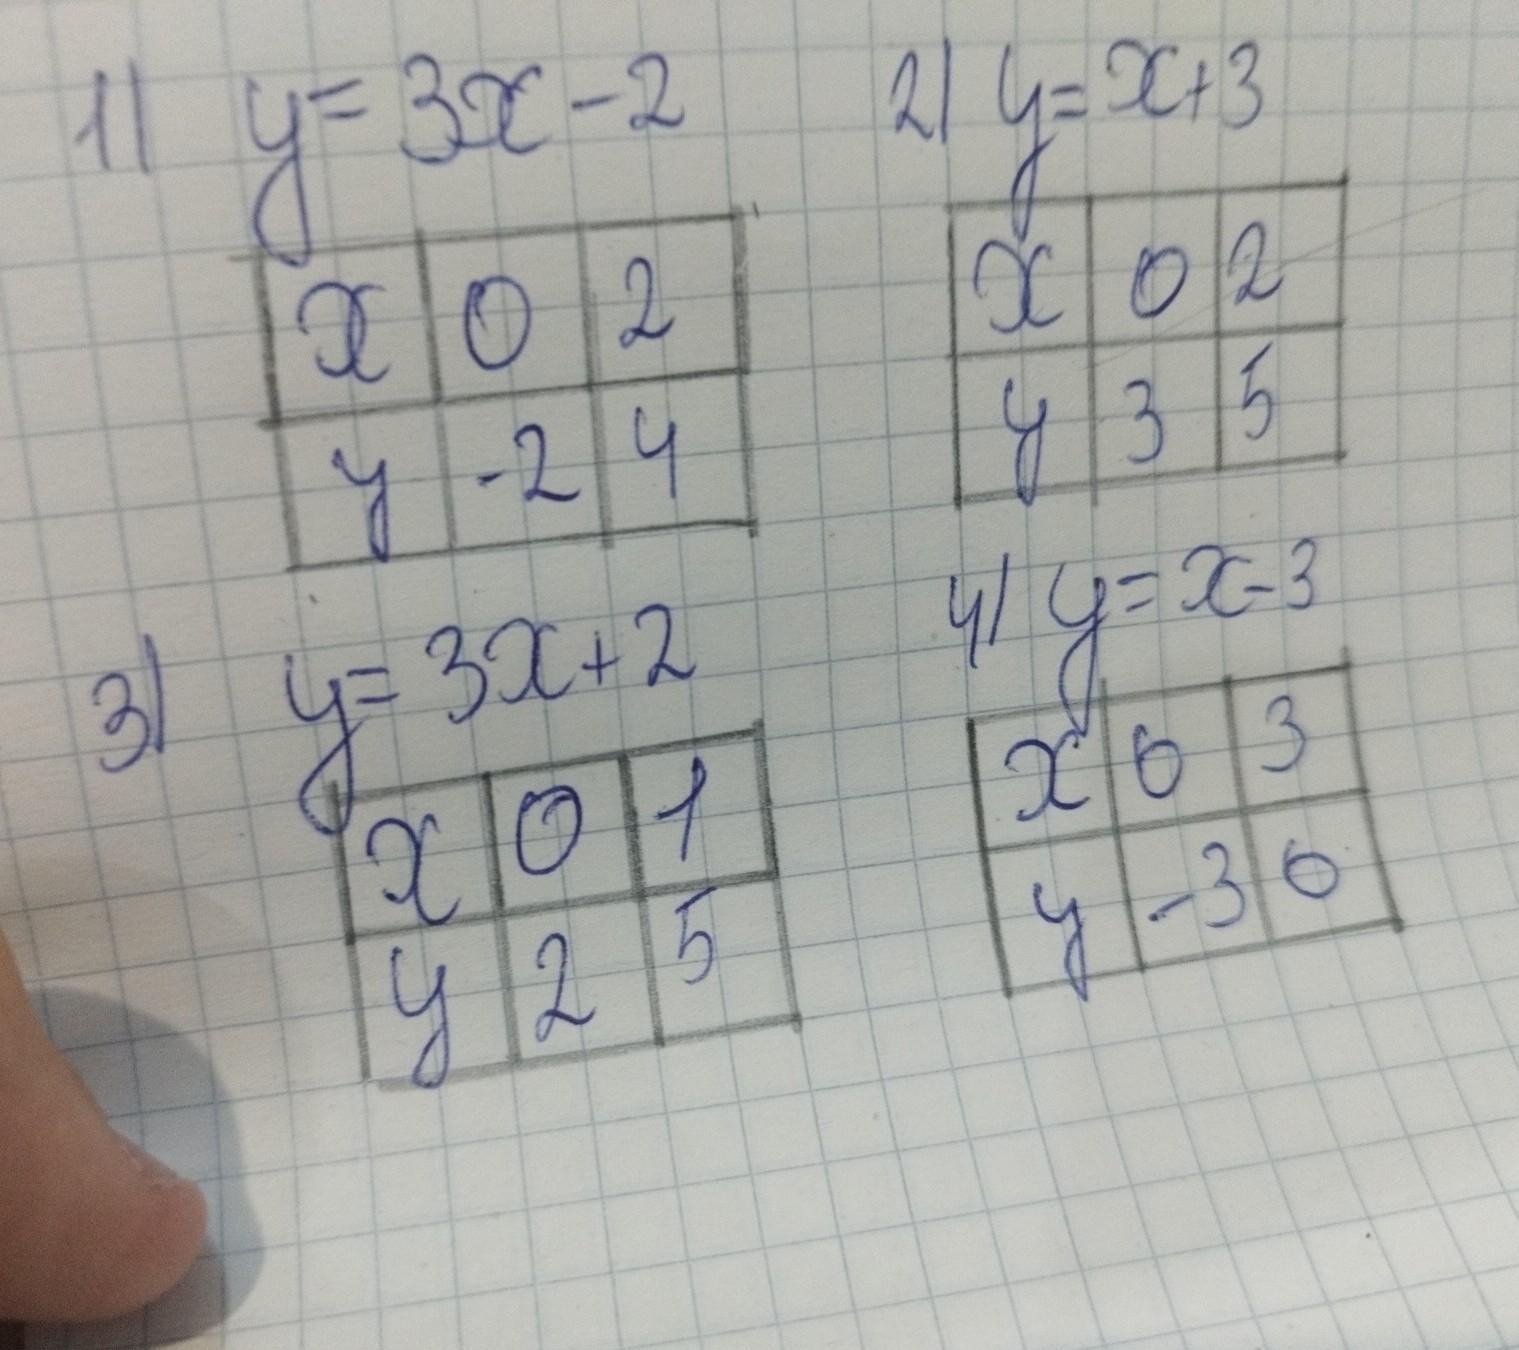 1) y = 3x - 2
x 0 2
y -2 4
2) y = x + 3
x 0 2
y 3 5
3) y = 3x + 2
x 0 1
y 2 5
4) y = x - 3
x 0 3
y -3 0